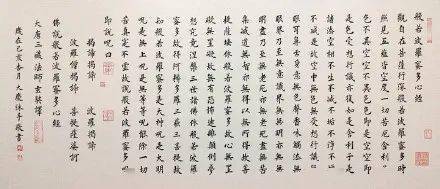 般若波羅蜜多心經
觀自在菩薩行深般若波羅蜜多時
照見五蘊皆空度一切苦厄舍利子
色不異空空不異色色即是空空即
是色受想行識亦復如是舍利子是
諸法空相不生不滅不垢不淨不增
不減是故空中無色無受想行識無
眼耳鼻舌身意無色聲香味觸法無
眼界乃至無意識界無無明亦無無
明盡乃至無老死亦無老死盡無苦
集滅道無智亦無得以無所得故菩
提薩埵依般若波羅蜜多故心無罣
礙無罣礙故無有恐怖遠離顛倒夢
想究竟涅槃三世諸佛依般若波羅
蜜多故得阿耨多羅三藐三菩提故
知般若波羅蜜多是大神咒是大明
咒是無上咒是無等等咒能除一切
苦真實不虛故說般若波羅蜜多咒
即說咒曰
揭諦揭諦 波羅揭諦
波羅僧揭諦 菩提薩婆訶
佛說般若波羅蜜多心經
大唐三藏法師玄奘譯
歲在己亥 月 大慶 書